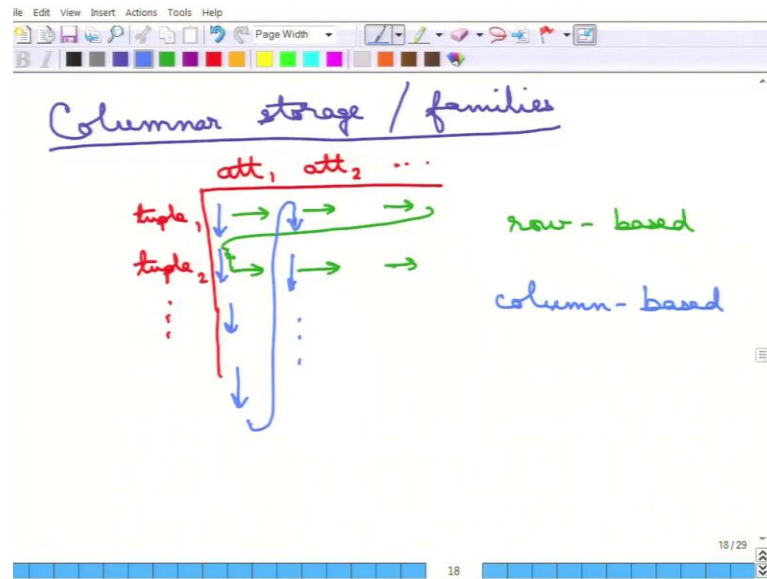 ile Edit View Insert Actions Tools Help
Page Width
B I
Columnar storage / families
att1 att2 ...
tuple1
row-based
tuple2
column-based
18/29
18